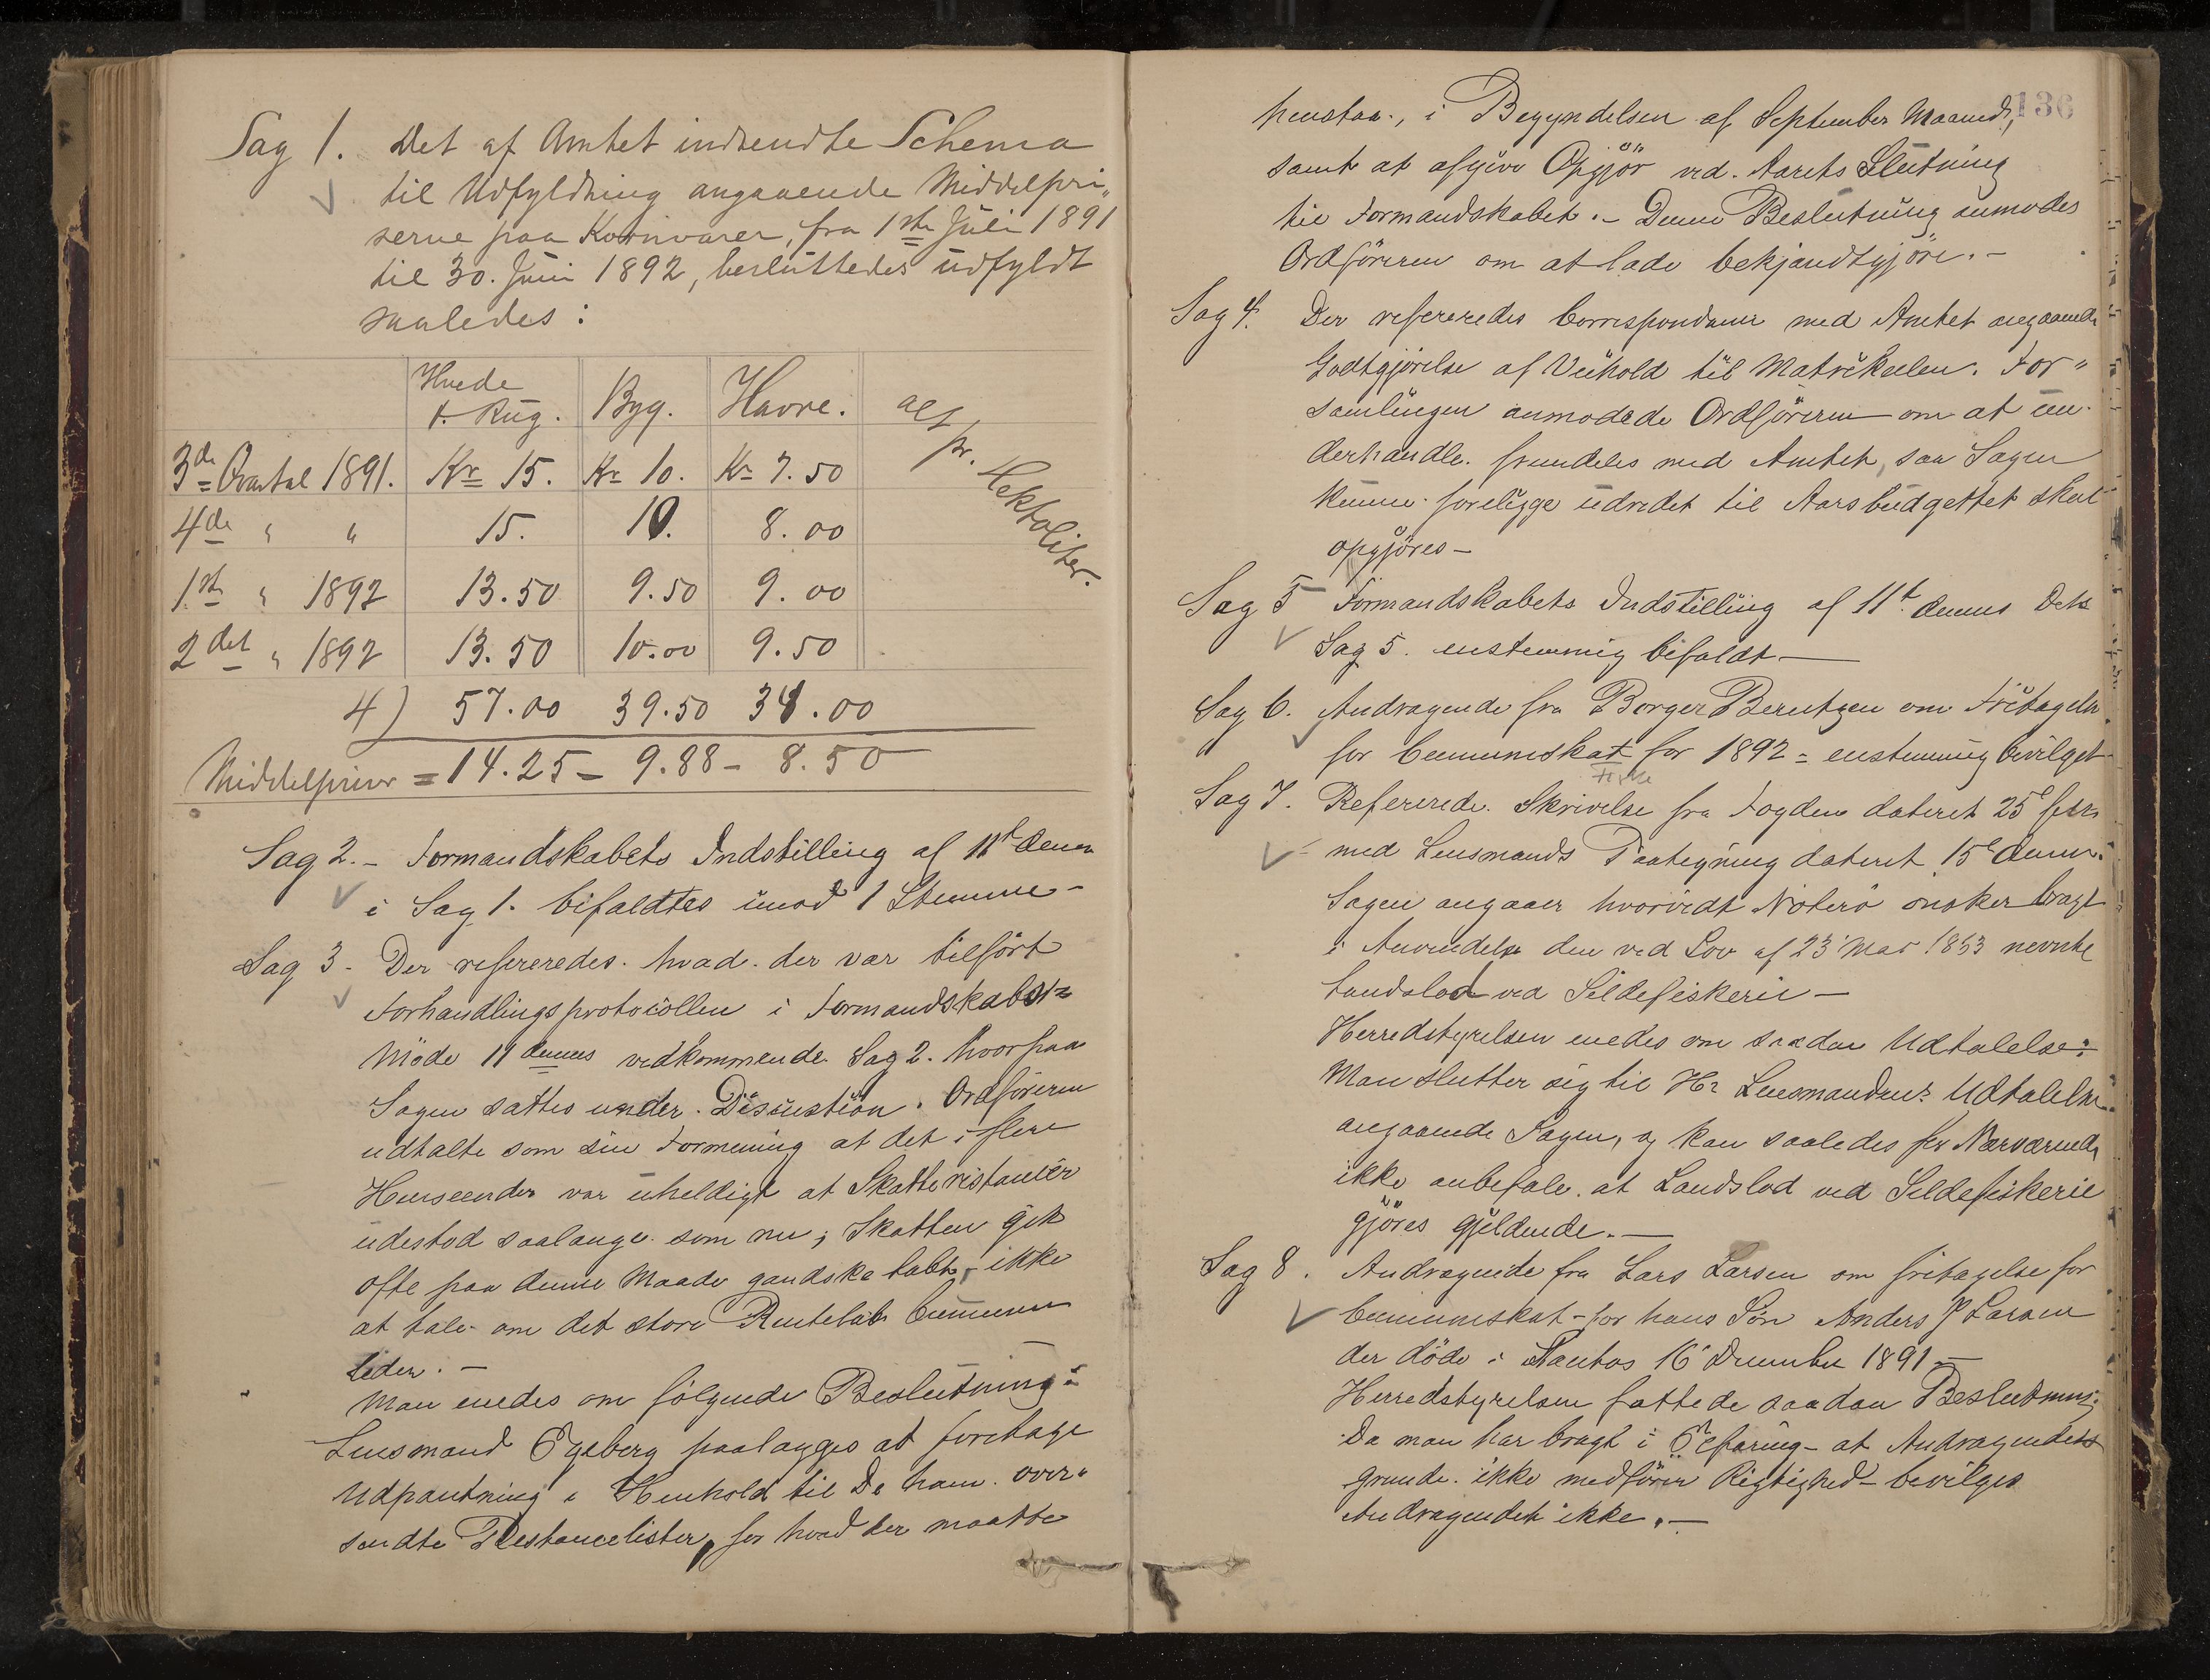 Sag 1. Det af Amtet indsendte Schema
til Udfyldning angaaende Middelpri„
serne paa Kornvarer, fra 1ste Juli 1891
til 30. Juni 1892, besluttedes udfyldt
saaledes:
Hvede
& Rug. Byg. Havre. alt pr. Hektoliter.
3de Qvartal 1891. Kr 15. Kr 10. Kr 7.50
4de " " 15. 10. 8.00
1ste " 1892 13.50 9.50 9.00
2det " 1892 13.50 10.00 9.50
4) 57.00 39.50 34.00
Middelpriser = 14.25 - 9.88 - 8.50
Sag 2. - Formandskabets Indstilling af 11te dennes
i Sag 1. bifaldtes imod 1 Stemme -
Sag 3 - Der refereredes hvad der var tilført
Forhandlingsprotocollen i Formandskabs=
Møde 11 dennes vedkommende Sag 2. hvorpaa
Sagen sattes under Discustion. Ordføreren
udtalte som sin Formening at det i flere
Henseender var uheldigt at Skatterestancer
udestod saalange som nu; Skatten gik
ofte paa denne Maade gandske tabt, ikke
at tale om det store Rentetab Cummunen
lider. -
Man enedes om følgende Beslutning:
Lensmand Egeberg paalægges at foretage
Udpantning i Henhold til De ham over„
sendte Restancelister, for hvad der maatte
136
henstaa, i Begyndelsen af September Maaned,
samt at afgive Opgjør ved Aarets Slutning
til Formandskabet. - Denne Beslutning anmodes
Ordføreren om at lade bekjendtgjøre. -
Sag 4. Der refereredes Correspondance med Amtet angaaende
Godtgjørelse af Veihold til Matrikelen. For„
samlingen anmodede Ordføreren om at un„
derhandle fremdeles med Amtet, saa Sagen
kunne foreligge udredet til Aarsbudgettet skal
opgjøres -
Sag 5 Formandskabets Indstilling af 11te dennes Dets
Sag 5. enstemmig bifaldt -
Sag 6. Andragende fra Borger Berntzen om Fritagelse
for Cummunskat for 1892 = enstemmig bevilget
Sag 7. Refererede Skrivelse fra Fogden dateret 25de
med Lensmands Paategning dateret 15de dennes.
Sagen angaaer hvorvidt Nøterø ønsker bragt
i Anvendelse den ved Lov af 23 Mai 1853 nevnte
Landslod ved Sildefiskerie -
Herredstyrelsen enedes om saadan Udtalelse:
Man slutter sig til Hr Lensmandens Udtalelse
angaaende Sagen, og kan saaledes for Nærværende
ikke anbefale at Landslod ved Sildefiskerie
gjøres gjeldende. -
Sag 8. Andragende fra Lars Larsen om fritagelse for
Cummunskat - for hans Søn Anders P Larsen
der døde i Santos 16 December 1891 -
Herredstyrelsen fattede saadan Beslutning:
Da man har bragt i Erfaring - at Andragendets
Grunde ikke medfører Rigtighed - bevilges
Andragendet ikke. -